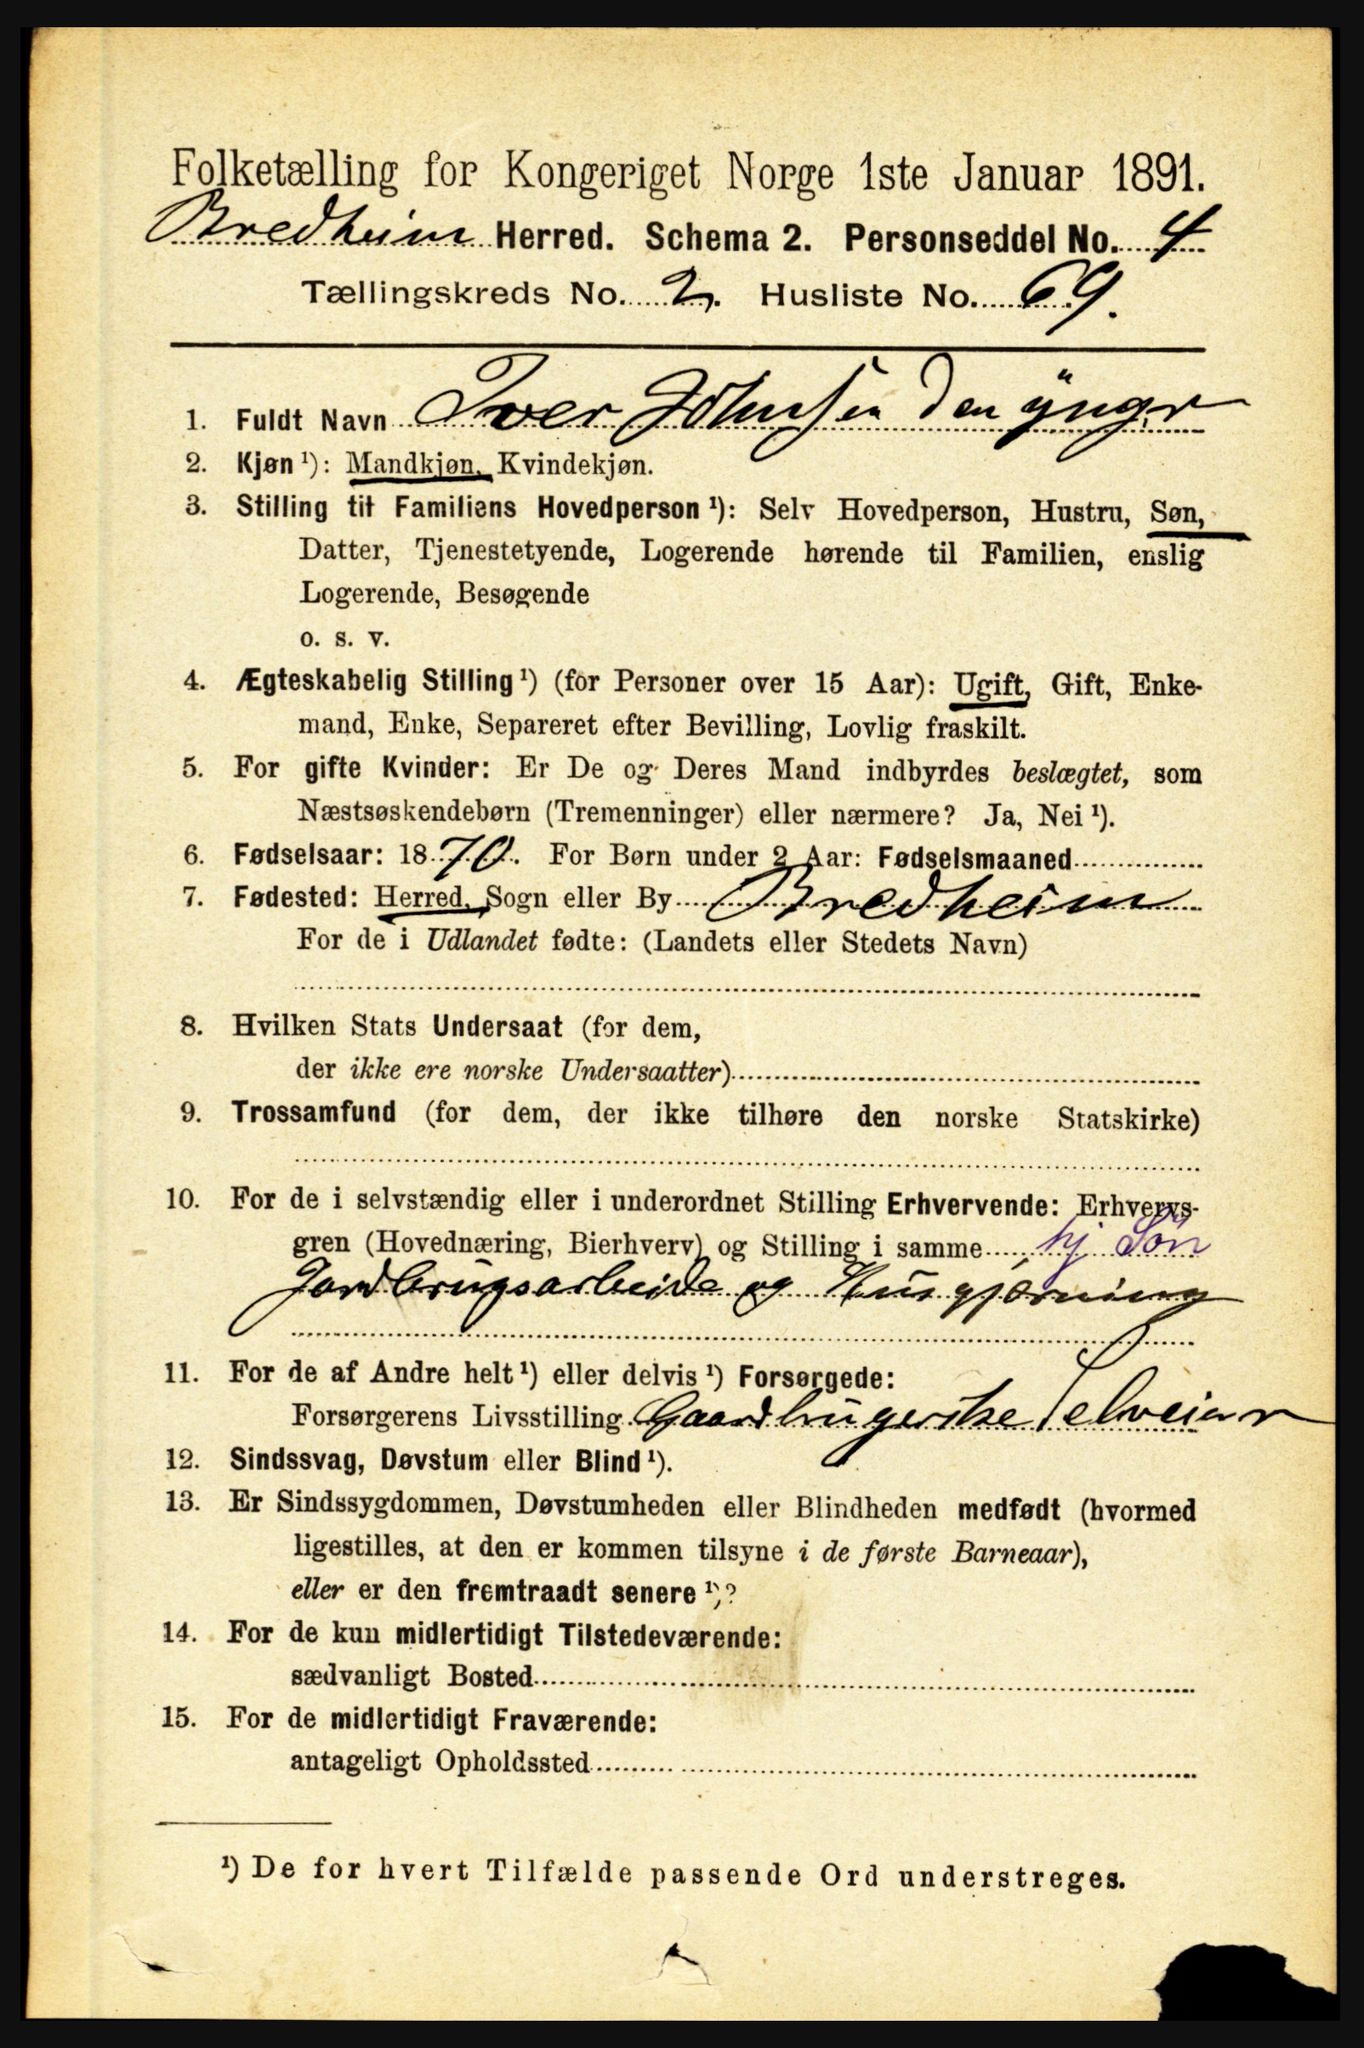 Folketælling for Kongeriget Norge 1ste Januar 1891.
Bredheim Herred. Schema 2. Personseddel No. 4
Tællingskreds No. 2. Husliste No. 69.
1. Fuldt Navn Iver Johnsen den yngr
2. Kjøn ¹): Mandkjøn, Kvindekjøn.
3. Stilling tit Familiens Hovedperson ¹): Selv Hovedperson, Hustru, Søn,
Datter, Tjenestetyende, Logerende hørende til Familien, enslig
Logerende, Besøgende
o. s. v.
4. Ægteskabelig Stilling ¹) (for Personer over 15 Aar): Ugift, Gift, Enke-
mand, Enke, Separeret efter Bevilling, Lovlig fraskilt.
5. For gifte Kvinder: Er De og Deres Mand indbyrdes beslægtet, som
Næstsøskendebørn (Tremenninger) eller nærmere? Ja, Nei ¹).
6. Fødselsaar: 1870. For Børn under 2 Aar: Fødselsmaaned
7. Fødested: Herred, Sogn eller By Bredheim
For de i Udlandet fødte: (Landets eller Stedets Navn)
8. Hvilken Stats Undersaat (for dem,
der ikke ere norske Undersaatter)
9. Trossamfund (for dem, der ikke tilhøre den norske Statskirke)
10. For de i selvstændig eller i underordnet Stilling Erhvervende: Erhvervs-
gren (Hovednæring, Bierhverv) og Stilling i samme hj Søn
Jordbrugsarbeide og Husgjerning
11. For de af Andre helt ¹) eller delvis ¹) Forsørgede:
Forsørgerens Livsstilling Gaardbrugerske Selveier
12. Sindssvag, Døvstum eller Blind ¹).
13. Er Sindssygdommen, Døvstumheden eller Blindheden medfødt (hvormed
ligestilles, at den er kommen tilsyne i de første Barneaar),
eller er den fremtraadt senere ¹)?
14. For de kun midlertidigt Tilstedeværende:
sædvanligt Bosted
15. For de midlertidigt Fraværende:
antageligt Opholdssted
¹) De for hvert Tilfælde passende Ord understreges.